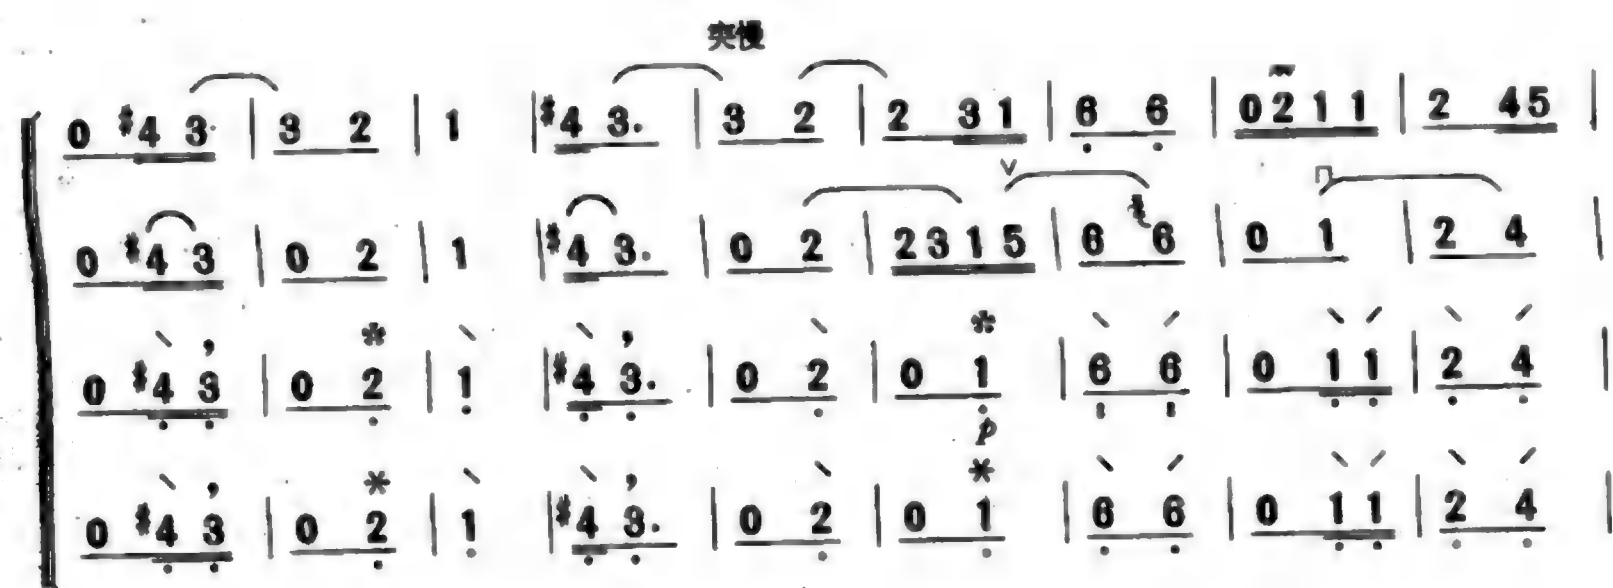 突慢
0 #4 3 | 3 2 | 1 | #4 3. | 3 2 | 2 31 | 6 6 | 0211 | 2 45 |
0 #4 3 | 0 2 | 1 | #4 3. | 0 2 | 2315 | 6 6 | 0 1 | 2 4 |
0 #4 3 | 0 2 | 1 | #4 3. | 0 2 | 0 1 | 6 6 | 0 11 | 2 4 |
p
0 #4 3 | 0 2 | 1 | #4 3. | 0 2 | 0 1 | 6 6 | 0 11 | 2 4 |